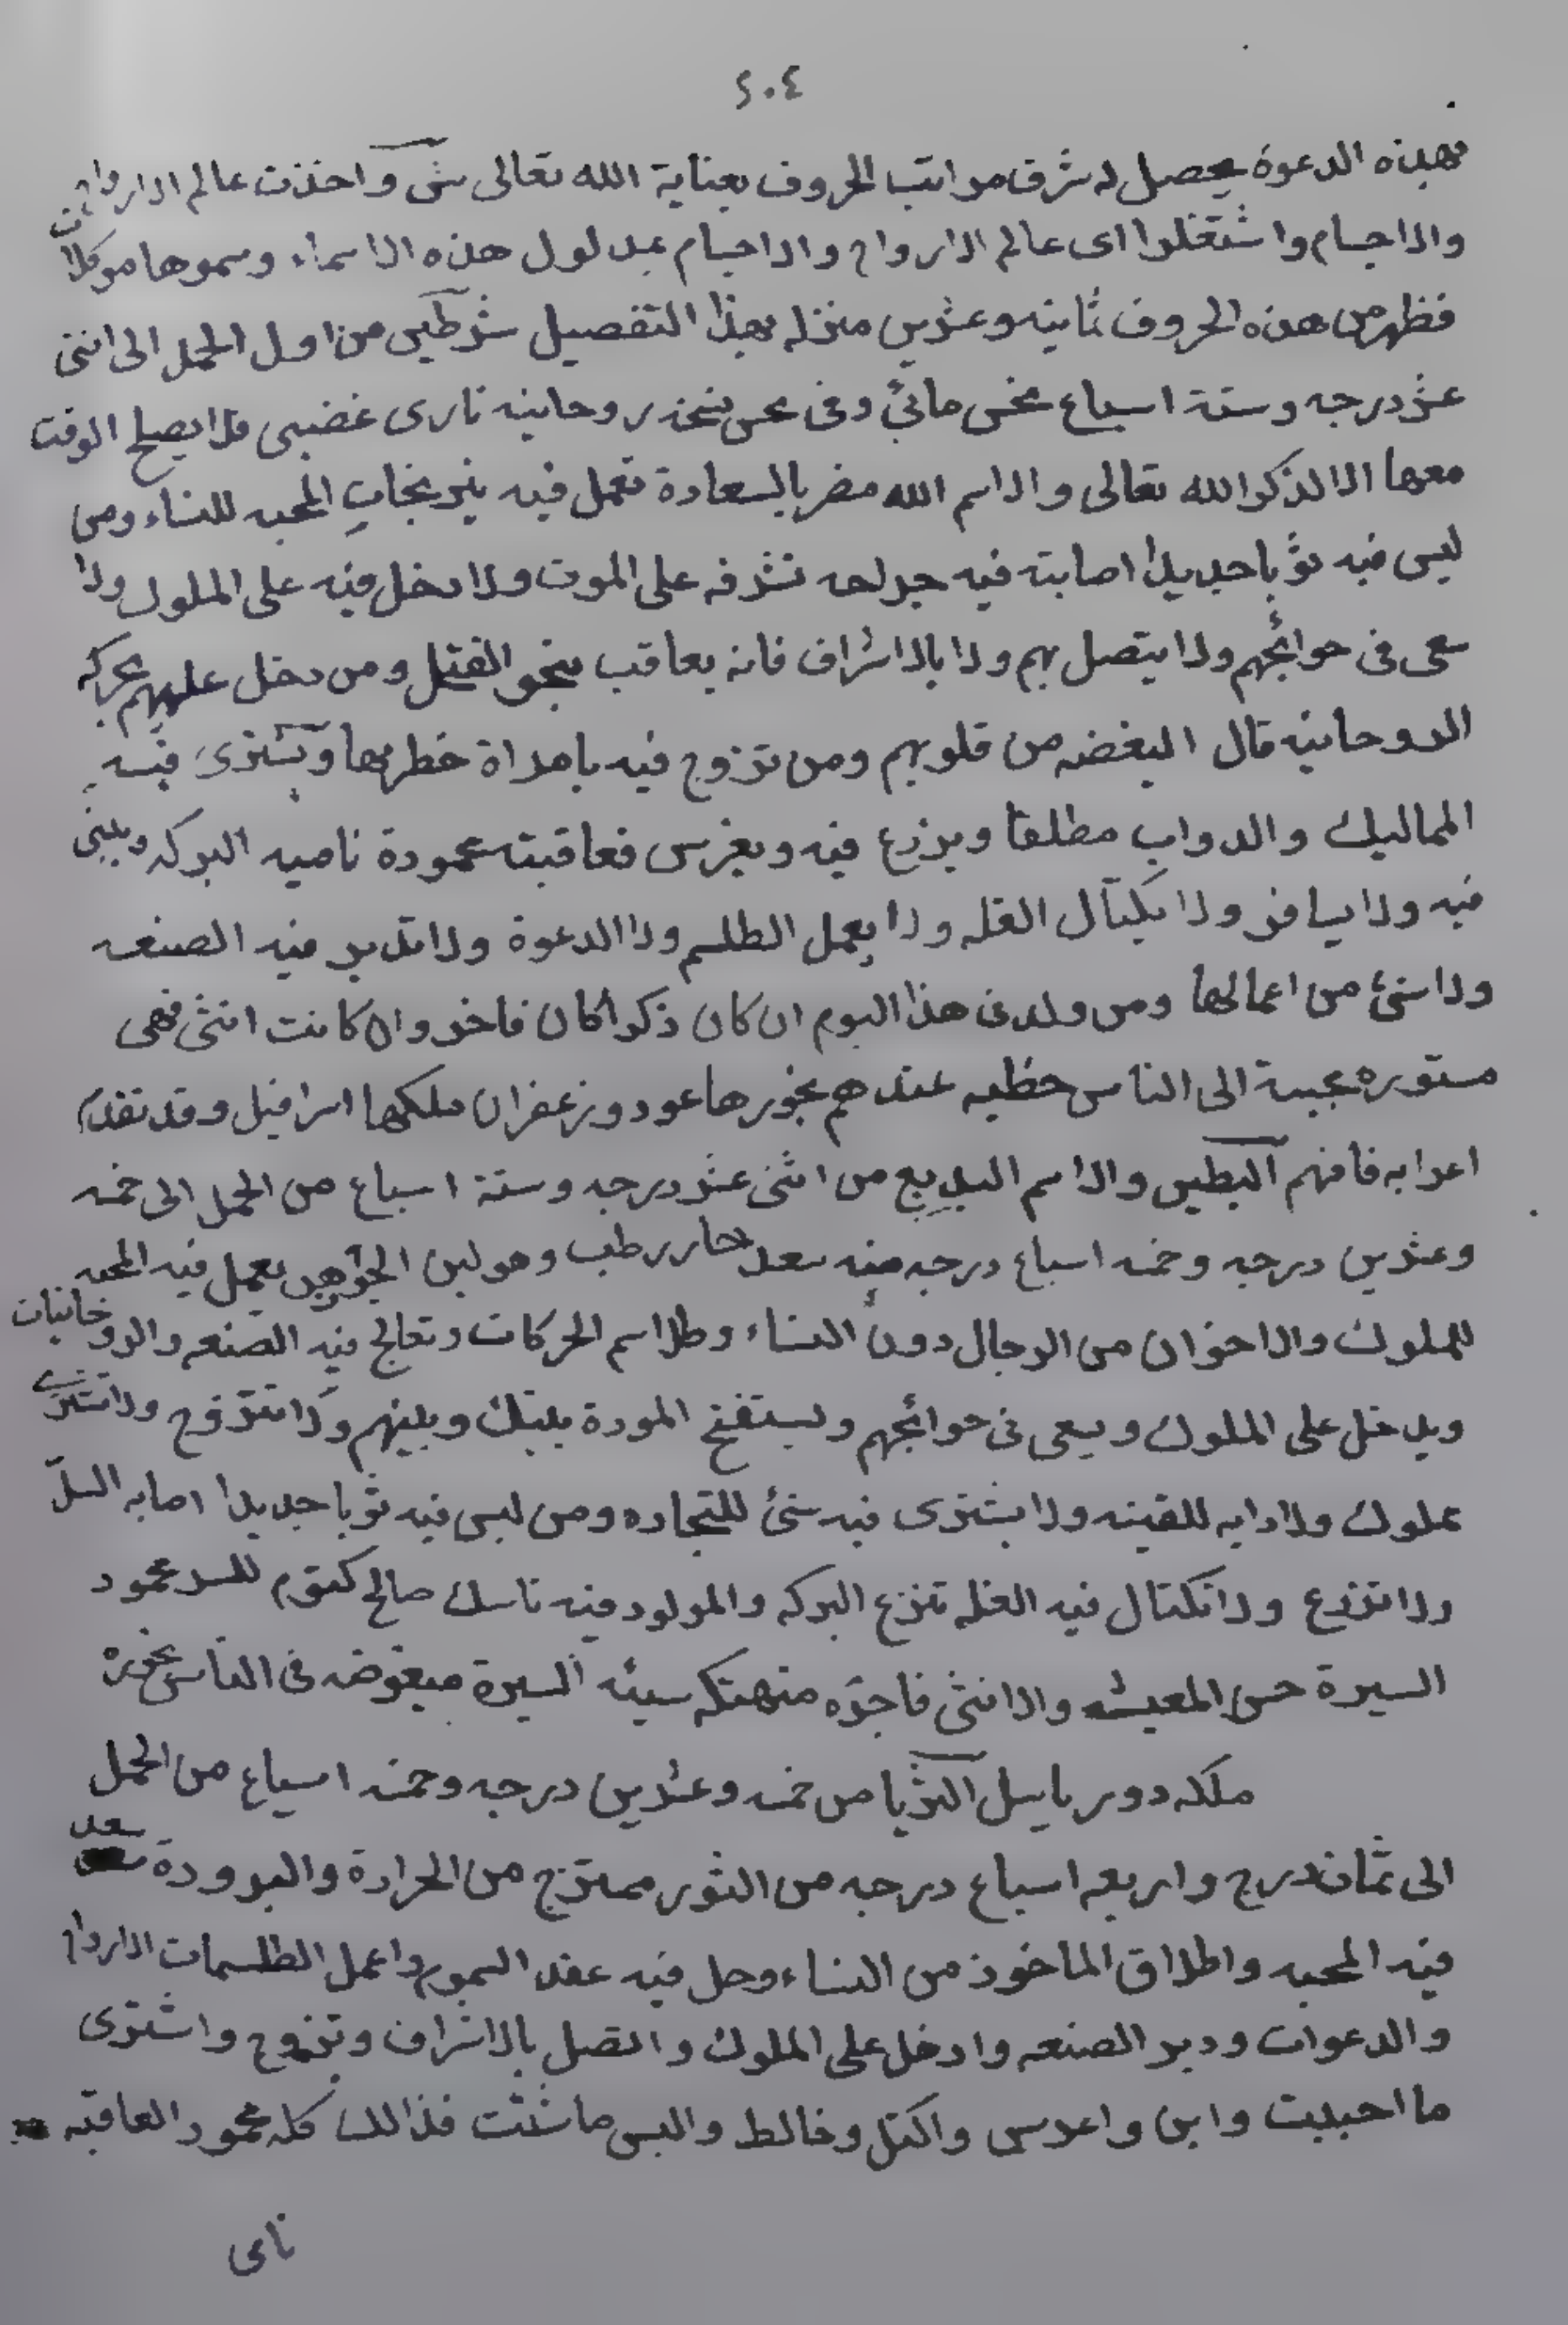 ٢٠٤
بهذه الدعوة يحصل له شرف مراتب الحروف بعناية الله تعالى شى واخذت عالم الارواح
والاجسام واشتغلوا اى عالم الارواح والاجسام بمدلول هذه الاسماء وسموها موكلات
فظهر من هذه الحروف ثمانيه وعشرين منزله بهذا التفصيل شرطين من اول الحمل الى اثنى
عشر درجه وستة اسباع نحس مائى وفى روحانيه نارى غضبى فلا يصلح الوقت
معها الا لذكر الله تعالى والاسم الله مضر بالسعادة تعمل فيه نيرنجات المحبه للنساء ومن
لبس فيه ثوبا جديدا اصابته فيه جراحه تشرفه على الموت ولا تدخل فيه على الملوك ولا
سعى فى حوائجهم ولا يتصل بهم ولا بالاشراف فانه يعاقب بنحو القتل ومن دخل عليهم بحركه
الروحانيه قال البغضه من قلوبهم ومن تزوج فيه بامراة خطر بها ويشترى فيه
المماليك والدواب مطلقا ويزرع فيه ويغرس فعاقبته محمودة ناميه البركه ويبنى
فيه ولا يسافر ولا يكتال الغله ولا يعمل الطلسم ولا الدعوة ولا تدبير فيه الصنعه
ولا شئ من اعمالها ومن ولد فى هذا اليوم ان كان ذكرا كان فاخر وان كانت انثى فهى
مستوره محببة الى الناس حظيه عندهم بخورها عود وزعفران ملكها اسرافيل وقد تقدم
اعرابه فافهم البطين والاسم البديع من اثنى عشر درجه وستة اسباع من الحمل الى خمسه
وعشرين درجه وخمسه اسباع درجه منه سعد حار رطب وهو لين الجواهر يعمل فيه المحبه
للملوك والاخوان من الرجال دون النساء وطلاسم الحركات وتعالج فيه الصنعه والروحانيات
ويدخل على الملوك ويسعى فى حوائجهم ويستفتح المودة بينك وبينهم ولا تتزوج ولا تشترى
مملوك ولا دابه للقينه ولا يشترى فيه شئ للتجاره ومن لبس فيه ثوبا جديدا اصابه السل
ولا تزرع ولا تكتال فيه الغله تنزع البركه والمولود فيه ناسك صالح كتوم للسر محمود
السيرة حسن المعيشه والانثى فاجره متهتكه سيئه السيرة مبغوضه فى الناس بخوره
ملكه دوريايل الثريا من خمسه وعشرين درجه وخمسه اسباع من الحمل
الى ثمان درج واربعه اسباع درجه من الثور ممتزج من الحرارة والبرودة سعد
فيه المحبه واطلاق الماخوذ من النساء وحل فيه عقد السموم واعمل الطلسمات الارواح
والدعوات ودبر الصنعه وادخل على الملوك واتصل بالاشراف وتزوج واشترى
ما احببت وابن واغرس واكتل وخالط والبس ما شئت فذالك كله محمود العاقبه
نارى